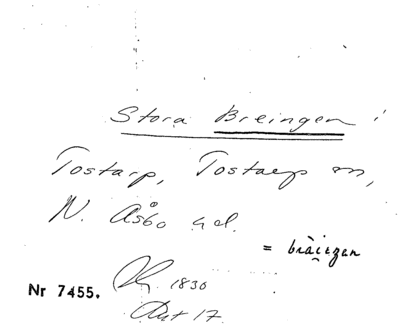 Stora Breingen i
Tostarp, Tostarp sn,
N. Åsbo hd.
= bräi
Nr 7455. 1830
Akt 17